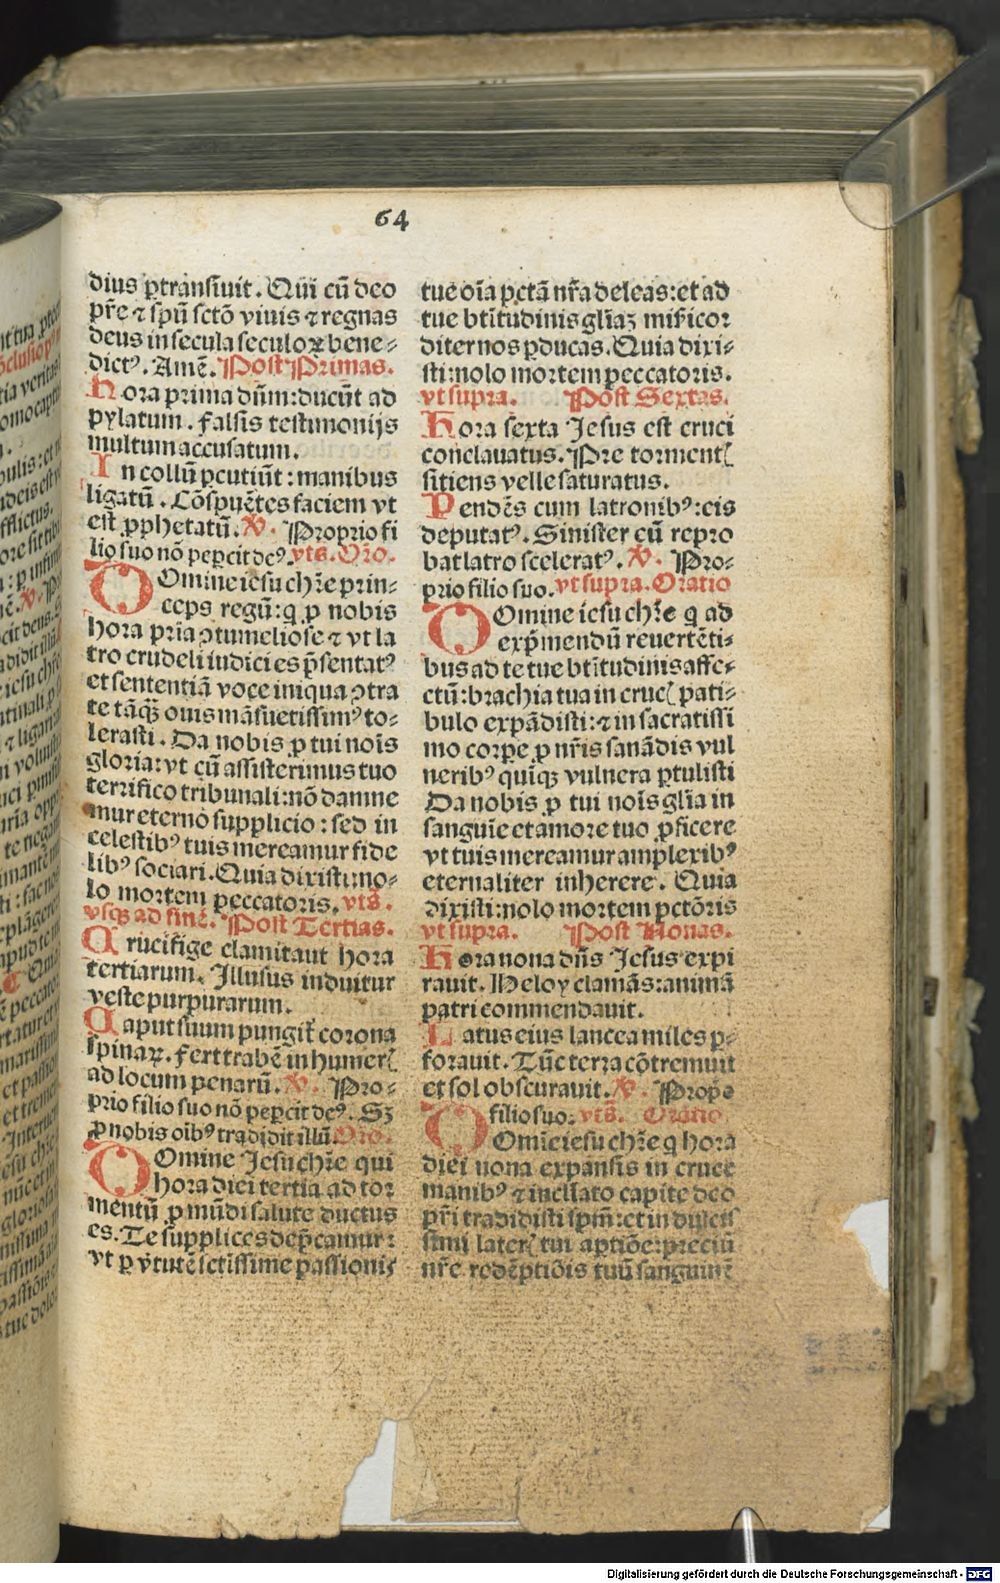 64
dius ꝑtransiuit. Qui cũ deo
pr̃e ⁊ spũ sctõ viuis ⁊ regnas
deus in secula seculoꝝ bene⸗
dictꝰ. Amẽ. Post Primas.
Hora prima dñm: ducũt ad
pylatum. falsis testimonijs
multum accusatum.
In collũ ꝑcutiũt: manibus
ligatũ. Cõspuẽtes faciem vt
est ꝓphetatũ. ℣. Proprio fi
lio suo nõ peꝑcit deꝰ. vts. Oro.
Domine iesu chr̃e prin⸗
ceps regũ: q̃ ꝓ nobis
hora pria ꝯtumeliose ⁊ vt la
tro crudeli iudici es p̃sentatꝰ
et sententiã voce iniqua ꝯtra
te tãq̃ꝫ ouis mãsuetissimꝰ to⸗
lerasti. Da nobis ꝓ tui nois̃
gloria: vt cũ assisterimus tuo
terrifico tribunali: nõ damne
mur eterno supplicio: sed in
celestibꝰ tuis mereamur fide
libꝰ sociari. Quia dixisti: no⸗
lo mortem peccatoris. vts̃.
vsqꝫ ad finẽ. Post Tertias.
Crucifige clamitaut hora
tertiarum. Illusus induitur
veste purpurarum.
Caput suum pungit̃ corona
spinaꝝ. fert trabẽ in humerꝭ
ad locum penarũ. ℣. Pro⸗
prio filio suo nõ peꝑcit deꝰ. Sꝫ
ꝓ nobis oĩbꝰ tradidit illũ. Oro.
Domine Jesu chr̃e qui
hora diei tertia ad tor
mentũ ꝓ mũdi salute ductus
es. Te supplices dep̃camur:
vt ꝑ v̓tutẽ sctissime passionis
tue oĩa pctã nr̃a deleas: et ad
tue btĩtudinis gl̃iaꝫ mis̃icor
diter nos ꝑducas. Quia dixi⸗
sti: nolo mortem peccatoris.
vt supra. Post Sextas.
Hora sexta Jesus est cruci
conclauatus. Pre tormentꝭ
sitiens velle saturatus.
Pendẽs cum latronibꝰ: eis
deputatꝰ. Sinister cũ repro
bat latro sceleratꝰ. ℣. Pro⸗
prio filio suo. vt supra. Oratio
Domine iesu chr̃e q̃ ad
exp̃mendũ reuertẽti⸗
bus ad te tue btĩtudinis affe⸗
ctũ: brachia tua in crucꝭ pati⸗
bulo expãdisti: ⁊ in sacratissi
mo corꝑe ꝓ nr̃is sanãdis vul
neribꝰ quiqꝫ vulnera ꝑtulisti
Da nobis ꝓ tui nois̃ gl̃ia in
sanguĩe et amore tuo ꝓficere
vt tuis mereamur amplexibꝰ
eternaliter inherere. Quia
dixisti: nolo mortem pctõris
vt supra. Post Nonas.
Hora nona dñs Jesus expi
rauit. Heloy clamãs: animã
patri commendauit.
Latus eius lancea miles ꝑ⸗
forauit. Tũc terra cõtremuit
et sol obscurauit. ℣. Prop̃o
filio suo. vts̃. Oratio
Domĩe iesu chr̃e q̃ hora
diei nona expansis in cruce
manibꝰ ⁊ incliato capite deo
pr̃i tradidisti spm̃: et in dulcis
simi laterꝭ tui aptiõe: preciũ
nr̃e redẽptiõis tuũ sanguinẽ
Digitalisierung gefördert durch die Deutsche Forschungsgemeinschaft - DFG